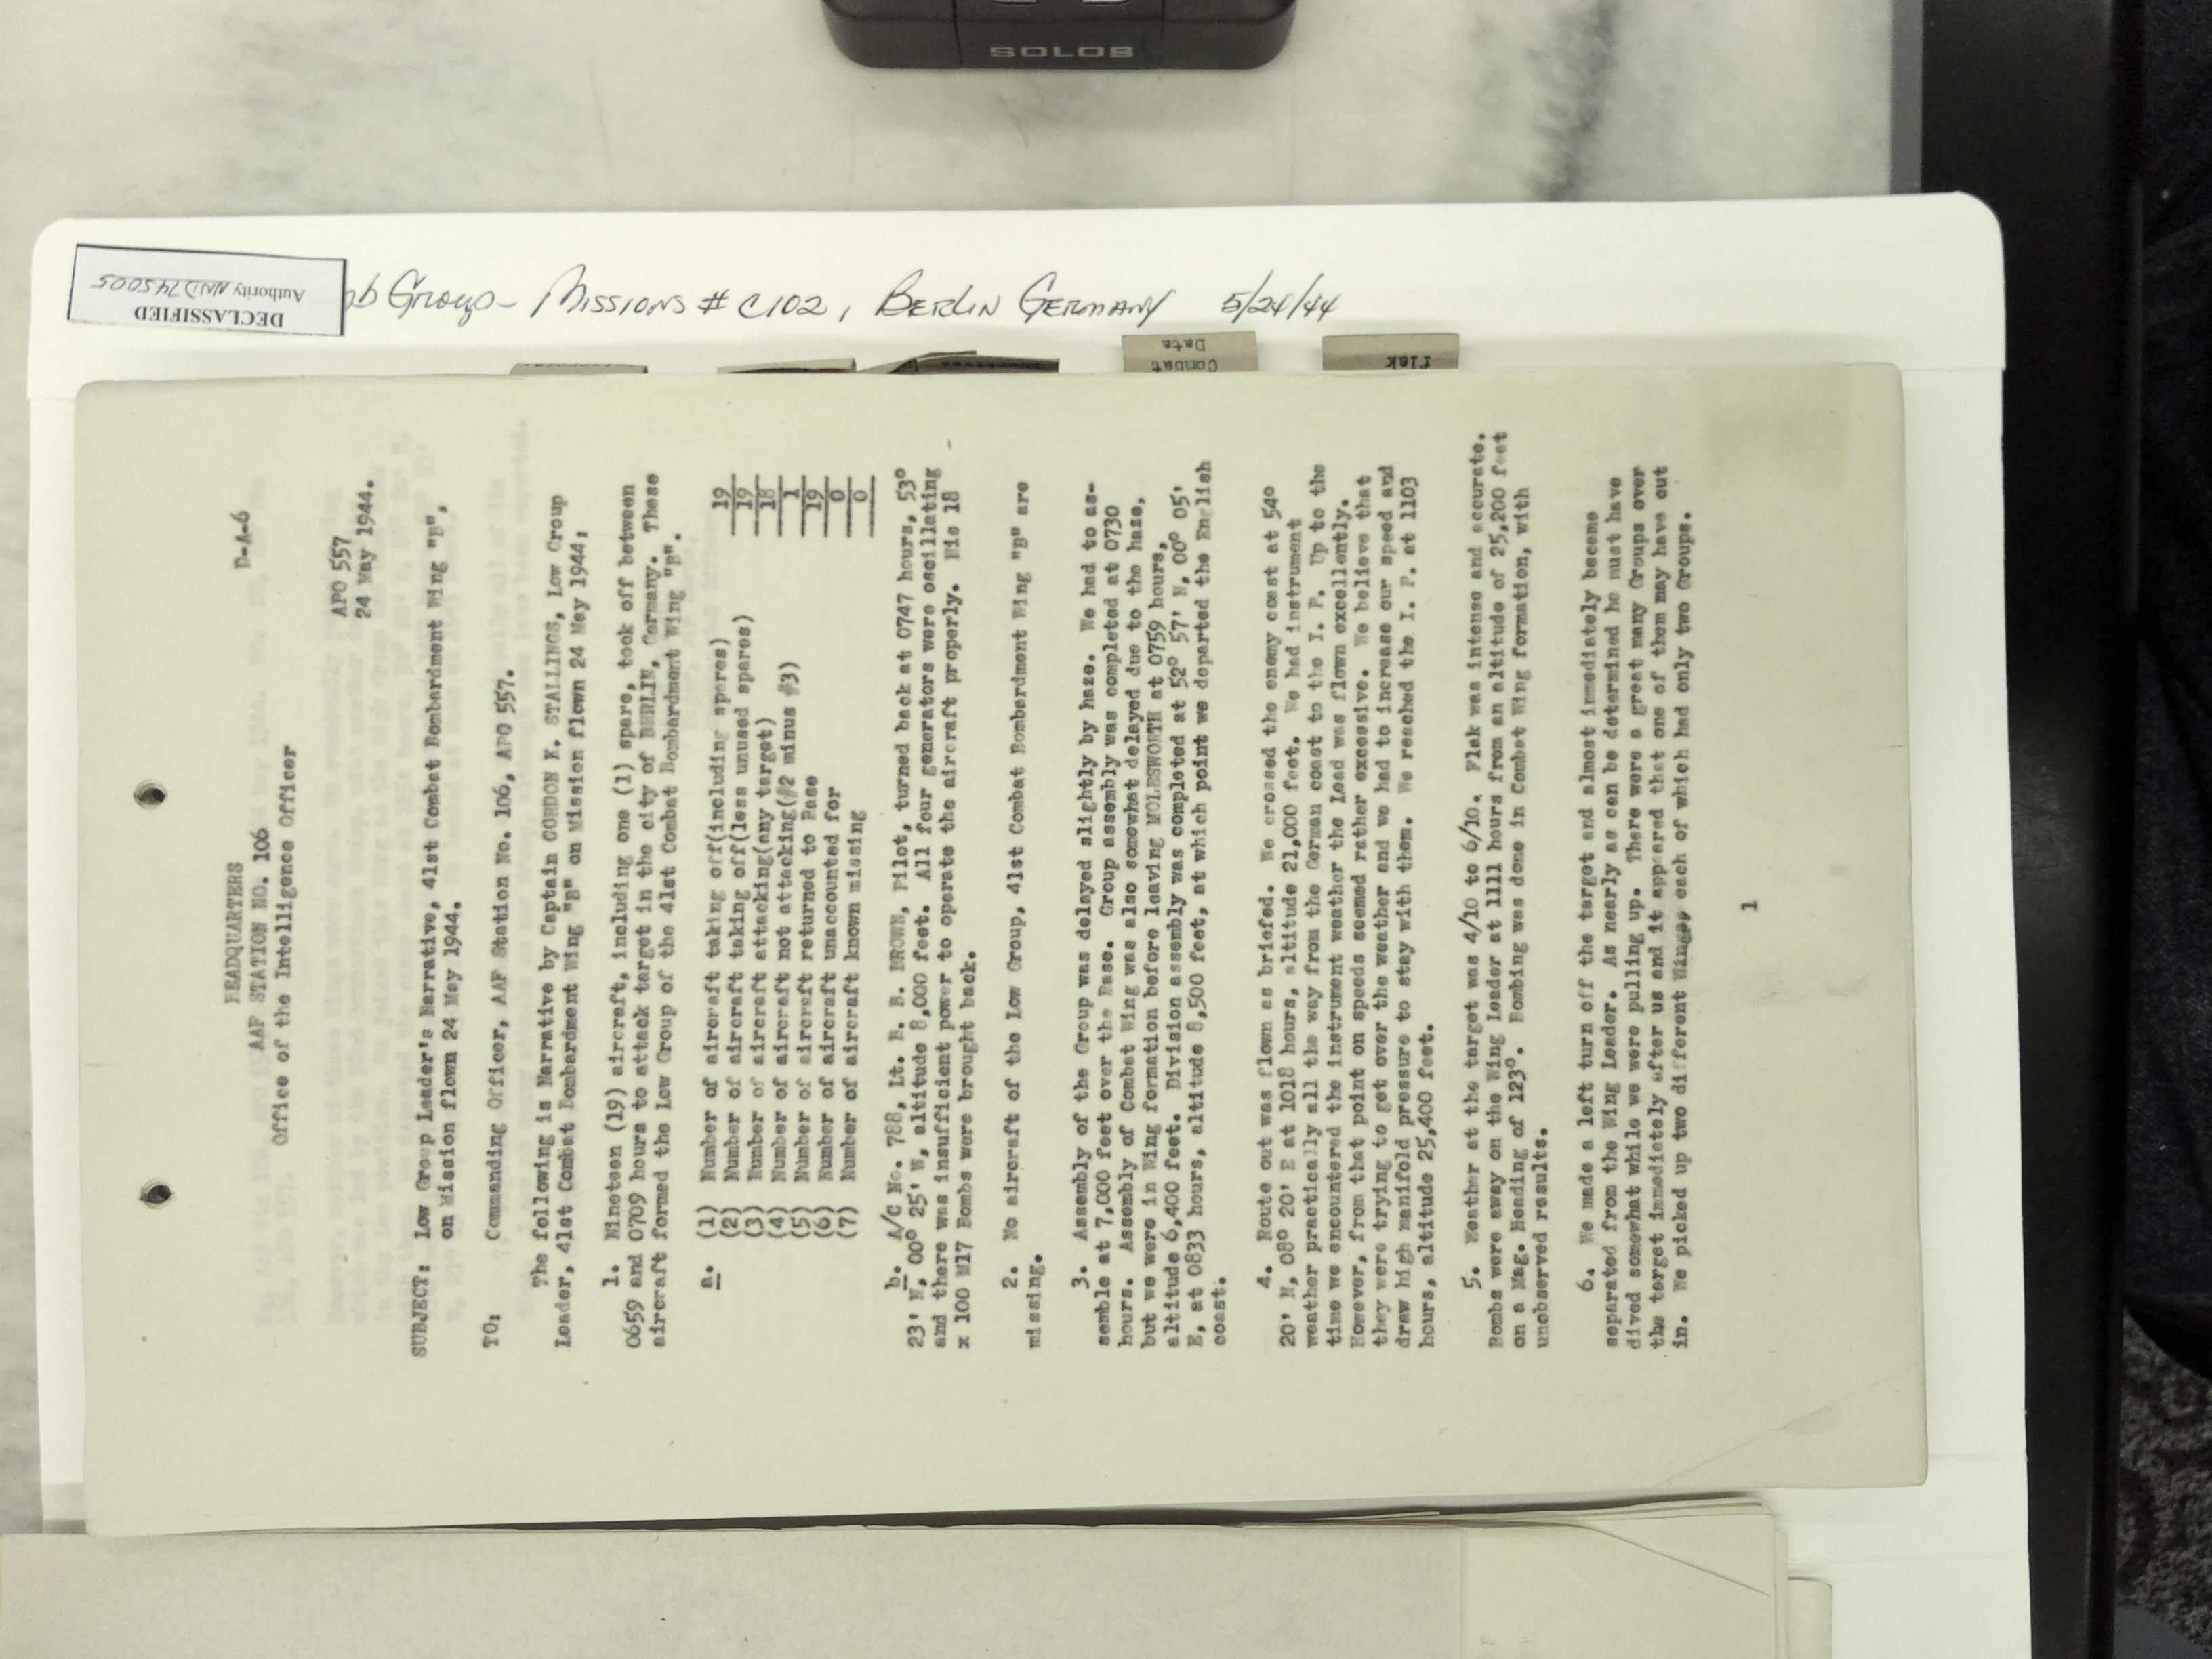 SOLO8
DECLASSIFIED
Authority NND745005
Group- Missions # C102, Berlin Germany 5/24/44
Combat
Data
Flak
HEADQUARTERS
AAF STATION NO. 106
Office of the Intelligence Officer
D-A-6
APO 557
24 May 1944.
SUBJECT: Low Group Leader's Narrative, 41st Combat Bombardment Wing "B",
on Mission flown 24 May 1944.
TO: Commanding Officer, AAF Station No. 106, APO 557.
The following is Narrative by Captain GORDON K. STALLINGS, Low Group
Leader, 41st Combat Bombardment Wing "B" on Mission flown 24 May 1944;
1. Nineteen (19) aircraft, including one (1) spare, took off between
0659 and 0709 hours to attack target in the city of BERLIN, Germany. These
aircraft formed the Low Group of the 41st Combat Bombardment Wing "B".
a. (1) Number of aircraft taking off(including spares) 19
(2) Number of aircraft taking off(less unused spares) 19
(3) Number of aircraft attacking(any target) 18
(4) Number of aircraft not attacking(#2 minus #3) 1
(5) Number of aircraft returned to Base 19
(6) Number of aircraft unaccounted for 0
(7) Number of aircraft known missing 0
b. A/C No. 788, Lt. B. B. BROWN, Pilot, turned back at 0747 hours, 53°
23' N, 00° 25' W, altitude 8,000 feet. All four generators were oscillating
and there was insufficient power to operate the aircraft properly. His 18
x 100 M17 Bombs were brought back.
2. No aircraft of the Low Group, 41st Combat Bombardment Wing "B" are
missing.
3. Assembly of the Group was delayed slightly by haze. We had to as-
semble at 7,000 feet over the Base. Group assembly was completed at 0730
hours. Assembly of Combat Wing was also somewhat delayed due to the haze,
but we were in Wing formation before leaving MOLESWORTH at 0759 hours,
altitude 6,400 feet. Division assembly was completed at 52° 57' N, 00° 05'
E, at 0833 hours, altitude 8,500 feet, at which point we departed the English
coast.
4. Route out was flown as briefed. We crossed the enemy coast at 54°
20' N, 08° 20' E at 1018 hours, altitude 21,000 feet. We had instrument
weather practically all the way from the German coast to the I. P. Up to the
time we encountered the instrument weather the Lead was flown excellently.
However, from that point on speeds seemed rather excessive. We believe that
they were trying to get over the weather and we had to increase our speed and
draw high manifold pressure to stay with them. We reached the I. P. at 1103
hours, altitude 25,400 feet.
5. Weather at the target was 4/10 to 6/10. Flak was intense and accurate.
Bombs were away on the Wing Leader at 1111 hours from an altitude of 25,200 feet
on a Mag. Heading of 123°. Bombing was done in Combat Wing formation, with
unobserved results.
6. We made a left turn off the target and almost immediately became
separated from the Wing Leader. As nearly as can be determined he must have
dived somewhat while we were pulling up. There were a great many Groups over
the target immediately after us and it appeared that one of them may have cut
in. We picked up two different Wings, each of which had only two Groups.
1